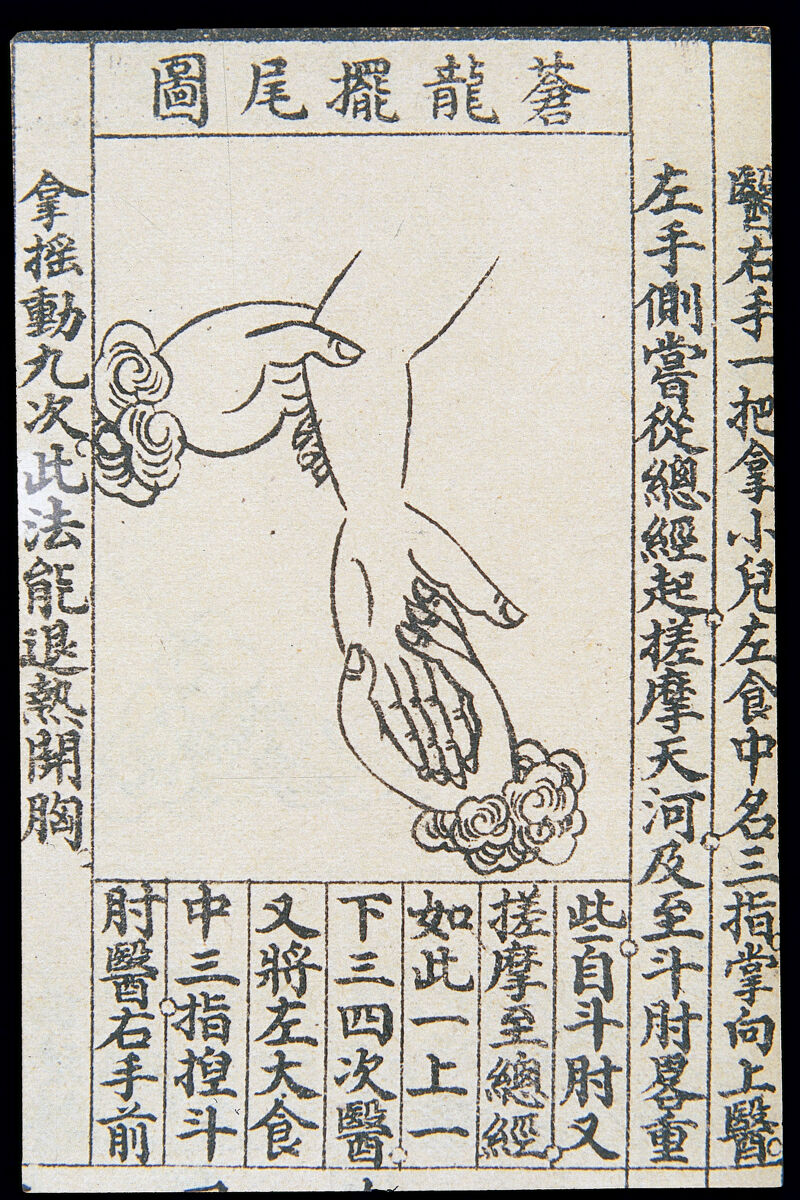 蒼龍擺尾圖
醫右手一把拿小兒左食中名三指掌向上醫
左手側嘗從總經起搓摩天河及至斗肘畧重
些自斗肘又
搓摩至總經
如此一上一
下三四次醫
又將左大食
中三指揑斗
肘醫右手前
拿揺動九次此法能退熱開胸